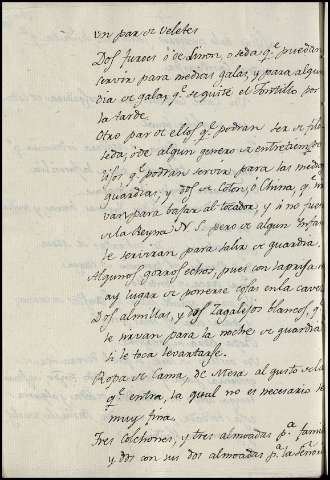 un par de veletes
Dos turcos ô de Linon, o seda q.e puedan
servir para medias galas, y para algun
Dia de gala, q.e se quite el Tontillo por
la tarde.
Otro par de ellos q.e podran ser de
seda, ô de algun genero de entretiempo
lisos q.e podran servir para las medias
guardias, y dos de Coton, ô China, q.e
van para bajar al tocador, y si no fue
de la Reyna N. S. pero de algun Infan
te serviran para salir de guardia.
Algunos gorros echos, pues con la prisa
ay lugar de ponerse cosas en la cave
Dos almillas, y dos Zagalejos blancos, q
le sirvan para la noche de guardia
si le toca levantarse.
Ropa de Cama, de Mesa al gusto de la
q.e entra, la qual no es necesario se
muy fina.
Tres Colchones, y tres almoadas p.a
y dos con sus dos almoadas p.a la Señor